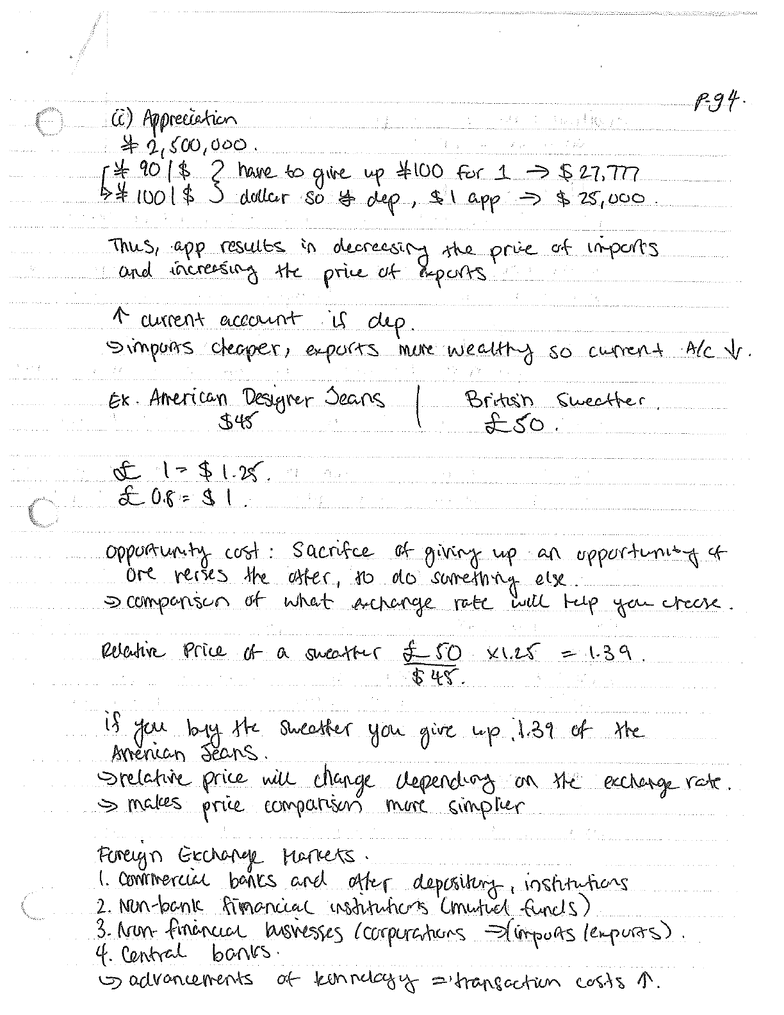 P-94.
(ii) Appreciation
¥ 2,500,000.
¥ 90 / $ } have to give up ¥100 for 1 → $ 27,777
¥ 100 / $ } dollar so ¥ dep, $1 app → $ 25,000.
Thus, app results in decreesing the price of imports
and increesing the price of exports
↑ current account is dep.
↳ imports cheaper, exports more wealthy so current A/C ↓.
Ex. American Designer Jeans | British Sweather.
$45 £50.
£ 1 = $ 1.25.
£ 0.8 = $ 1.
opportunity cost: Sacrifce of giving up an opportunity of
one verses the other, to do something else.
↳ comparison of what exchange rate will help you choose.
Relative Price of a sweather £50 x1.25 = 1.39.
$45.
if you buy the sweather you give up 1.39 of the
American Jeans.
↳ relative price will change depending on the exchange rate.
↳ makes price comparison more simplier
Foreign Exchange Markets.
1. Commercial banks and other depository, institutions
2. Non-bank financial institutions (mutual funds)
3. Non financial businesses (corporations → (imports / exports).
4. Central banks.
↳ advancements of = transaction costs ↑.